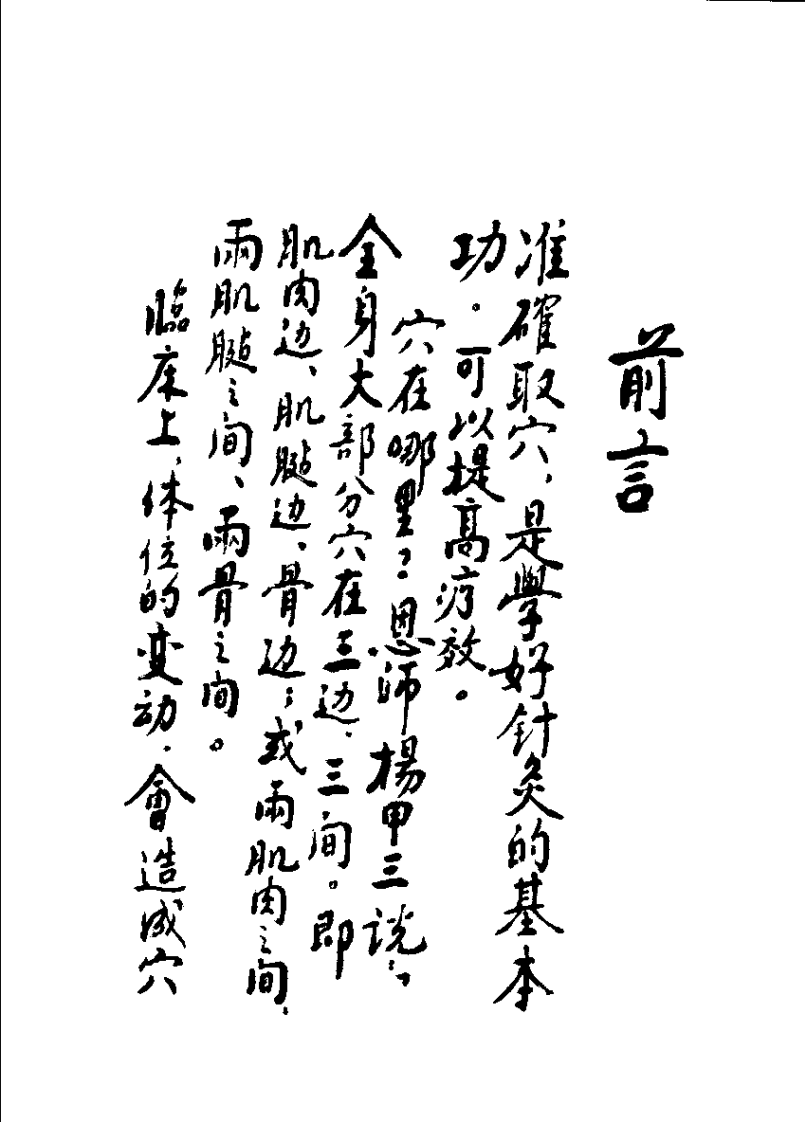 前言
准確取穴，是學好針灸的基本
功。可以提高疗效。
穴在哪里？恩师楊甲三説：
全身大部分穴在三边、三间。即
肌肉边、肌腱边、骨边；或兩肌肉之间、
兩肌腱之间、兩骨之间。
臨床上，体位的变动，會造成穴